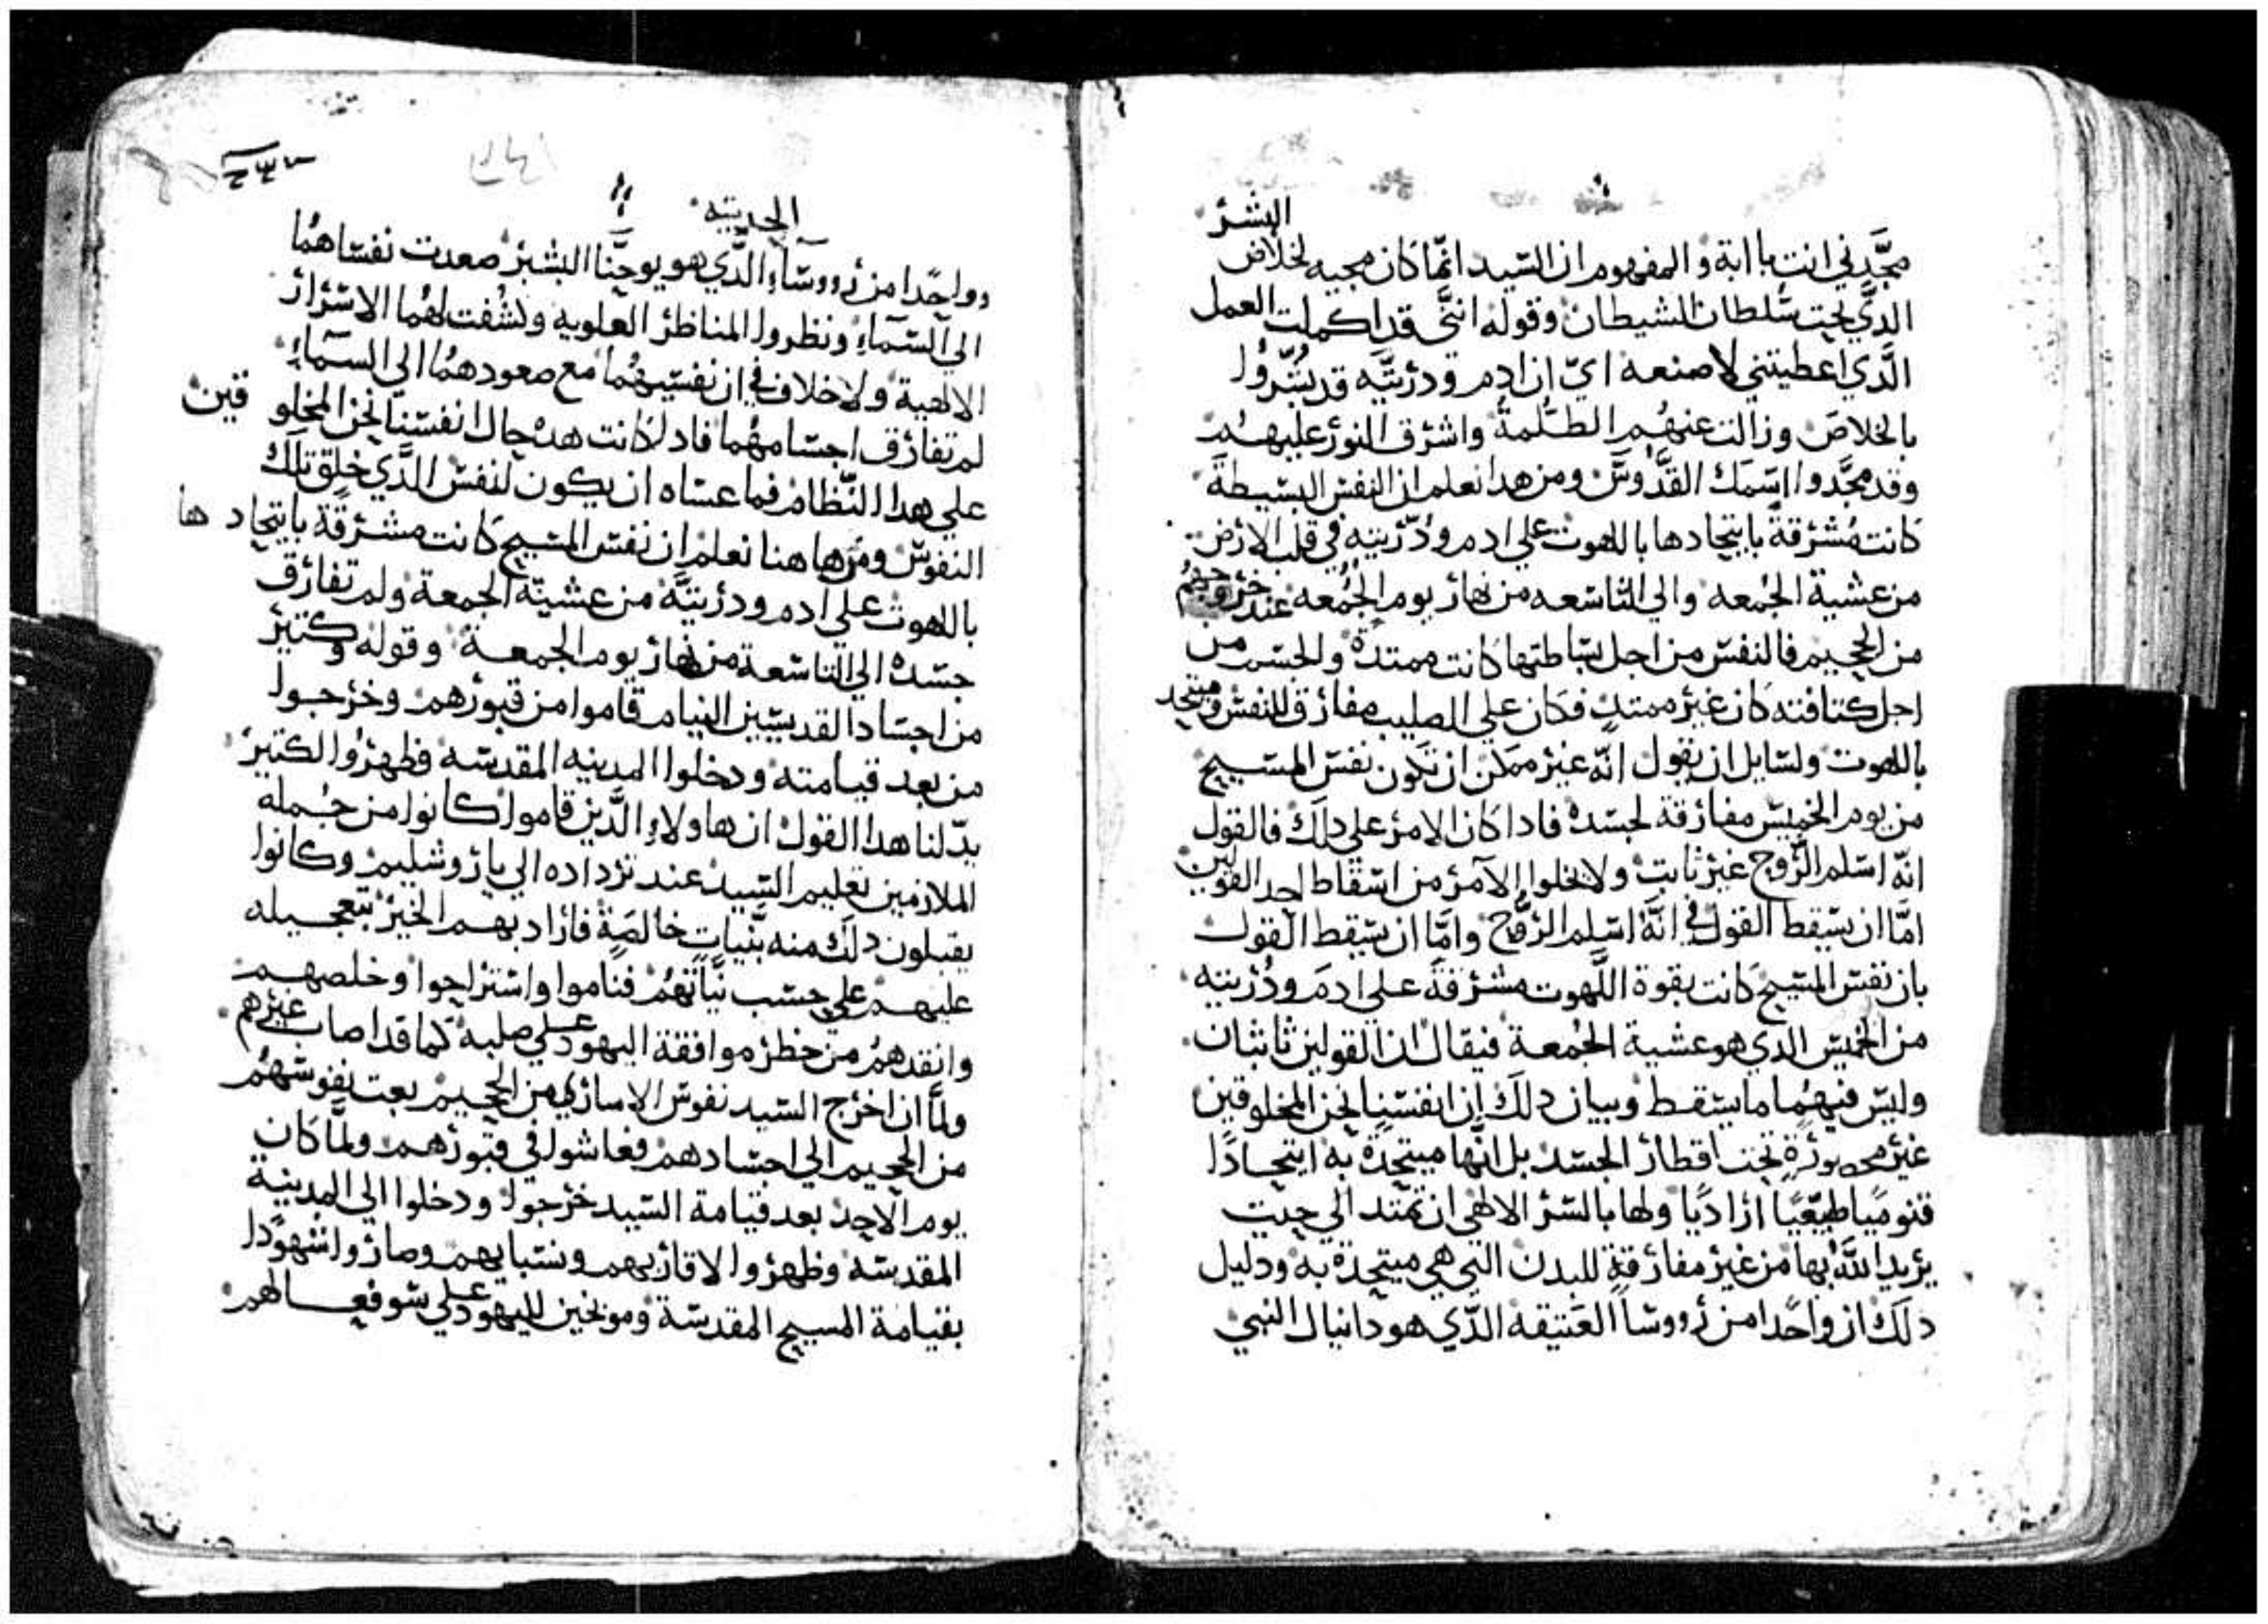 البشر
مجّدني انت يا ابة والمفهوم ان السّيد انّما كان مجيه لخلاص
الدّي تحت سُلطان الشيطان وقوله انني قد اكملت العمل
الدّي اعطيتني لاصنعه اي ان ادم ودريّته قد بُشّروا
بالخلاص وزالت عنهُم الظلمة واشرق النور عليهم
وقد مجّدوا اسمك القدّوس ومن هدا نعلم ان النفس البسيطة
كانت مُشرقة باتحادها باللهوت علي ادم ودُرّيته في قلب الارض
من عشية الجُمعه والي التاسعه من نهار يوم الجُمعه عند خروجهم
من الجحيم فالنفس من اجل بساطتها كانت ممتدة والجسم من
اجل كتافته كان غير ممتد فكان علي الصليب مفارق للنفس ومتحد
باللهوت ولسايل ان يقول انّه غير ممكن ان تكون نفس المسيح
من يوم الخميس مفارقة لجسده فادا كان الامر علي دلك فالقول
انّه اسلم الرّوح غير ثابت ولا يخلوا الامر من اسقاط احد القولين
امّا ان يسقط القول في انّه اسلم الرّوح وامّا ان يسقط القول
بان نفس المسيح كانت بقوة اللّهوت مشرفة علي ادم ودُريته
من الخميس الدي هو عشية الجُمعة فيقال ان القولين ثابتان
وليس فيهُما ما يسقط وبيان دلك ان انفسنا نحن المخلوقين
غير محصورةٍ تحت اقطار الجسد بل انّها متحدة به اتحادًا
قنوميًا طبيعيًا اراديًا ولها بالسّر الالاهي ان تمتد الي حيت
يريد اللّه بها من غير مفارقةٍ للبدن التي هي متحدة به ودليل
دلك ان واحدًا من رووسا العتيقه الدّي هو دانيال النبي
الحديته
وواحدًا من رووساء الدّي هو يوحنّا البشير صعدت نفساهُما
الي السّماء ونظروا المناظر العلويه وكشفت لهُما الاسرار
الالاهية ولا خلاف في ان نفسيهُما مع صعودهمُا الي السماء
لم تفارق اجسامهُما فاد كانت هده حال انفسنا نحن المخلوقين
علي هدا النّظام فما عساه ان يكون لنفس الدّي خلق تلك
النفوس ومن هاهنا نعلم ان نفس المسيح كانت مشرقة باتحادها
باللهوت علي ادم ودريتّه من عشيّة الجمعة ولم تفارق
جسده الي التاسعة من نهار يوم الجمعة وقوله وكتير
من اجساد القديسين النيام قاموا من قبورهم وخرجوا
من بعد قيامته ودخلوا المدينه المقدسه فظهروا لكتير
يدّلنا هدا القول ان هاولاء الدّين قاموا كانوا من جُمله
الملازمين تعليم السّيد عند ترداده الي ياروشليم وكانوا
يقبلون دلك منه بنّياتٍ خالصةٍ فاراد بهم الخير بتعجيله
عليهم علي حسب نيّاتهُم فناموا واستراحوا وخلصهم
وانقدهمُ من خطر موافقة اليهود علي صلبه كما قد اصاب غيرهم
ولمّا ان اخرج السيد نفوس الاساري من الجحيم بعت نفوسهُم
من الجحيم الي اجسادهم فعاشوا في قبورهم ولمّا كان
يوم الاحد بعد قيامة السّيد خرجوا ودخلوا الي المدينة
المقدسه وظهروا لاقاربهم ونسبايهم وصاروا شهودًا
بقيامة المسيح المقدسة وموبخين لليهود علي سو فعالهم